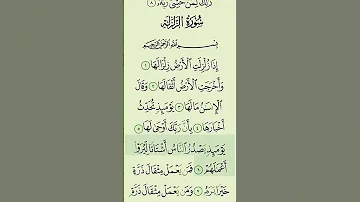 ذَٰلِكَ لِمَنۡ خَشِيَ رَبَّهُۥ ٨
سُورَةُ الزَّلۡزَلَةِ
بِسۡمِ ٱللَّهِ ٱلرَّحۡمَٰنِ ٱلرَّحِيمِ
إِذَا زُلۡزِلَتِ ٱلۡأَرۡضُ زِلۡزَالَهَا ١
وَأَخۡرَجَتِ ٱلۡأَرۡضُ أَثۡقَالَهَا ٢ وَقَالَ
ٱلۡإِنسَٰنُ مَا لَهَا ٣ يَوۡمَئِذٖ تُحَدِّثُ
أَخۡبَارَهَا ٤ بِأَنَّ رَبَّكَ أَوۡحَىٰ لَهَا ٥
يَوۡمَئِذٖ يَصۡدُرُ ٱلنَّاسُ أَشۡتَاتٗا لِّيُرَوۡاْ
أَعۡمَٰلَهُمۡ ٦ فَمَن يَعۡمَلۡ مِثۡقَالَ ذَرَّةٍ
خَيۡرٗا يَرَهُۥ ٧ وَمَن يَعۡمَلۡ مِثۡقَالَ ذَرَّةٖ